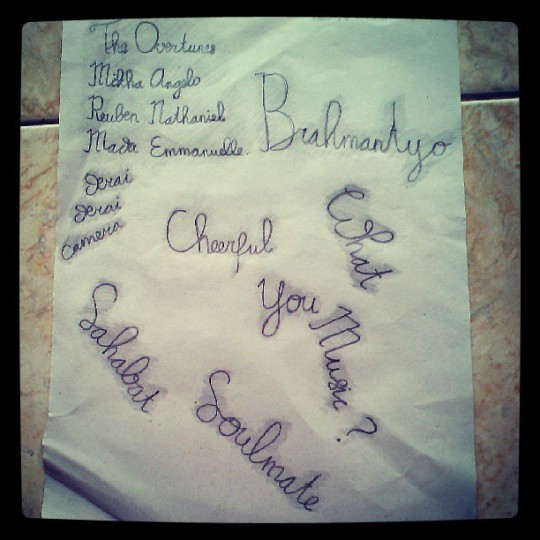 The Overtunes
Mikha Angelo
Reuben Nathaniel
Mada Emmanuelle.
Brahmantyo
Derai
Derai
Camera
Cheerful
What
You Music?
Sahabat
Soulmate